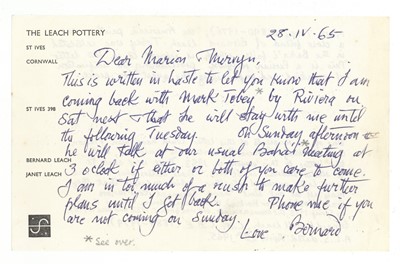 THE LEACH POTTERY
28-IV-65
ST IVES
CORNWALL
ST IVES 398
BERNARD LEACH
JANET LEACH
Dear Marion & Mervyn,
This is written in haste to let you know that I am
coming back with Mark Tobey* by Riviera on
Sat next & that he will stay with me until
the following Tuesday. On Sunday afternoon
he will talk at our usual Bahai* meeting at
3 o'clock if either or both of you care to come.
I am in too much of a rush to make further
plans until I get back. Phone me if you
are not coming on Sunday.
Love Bernard
* See over.